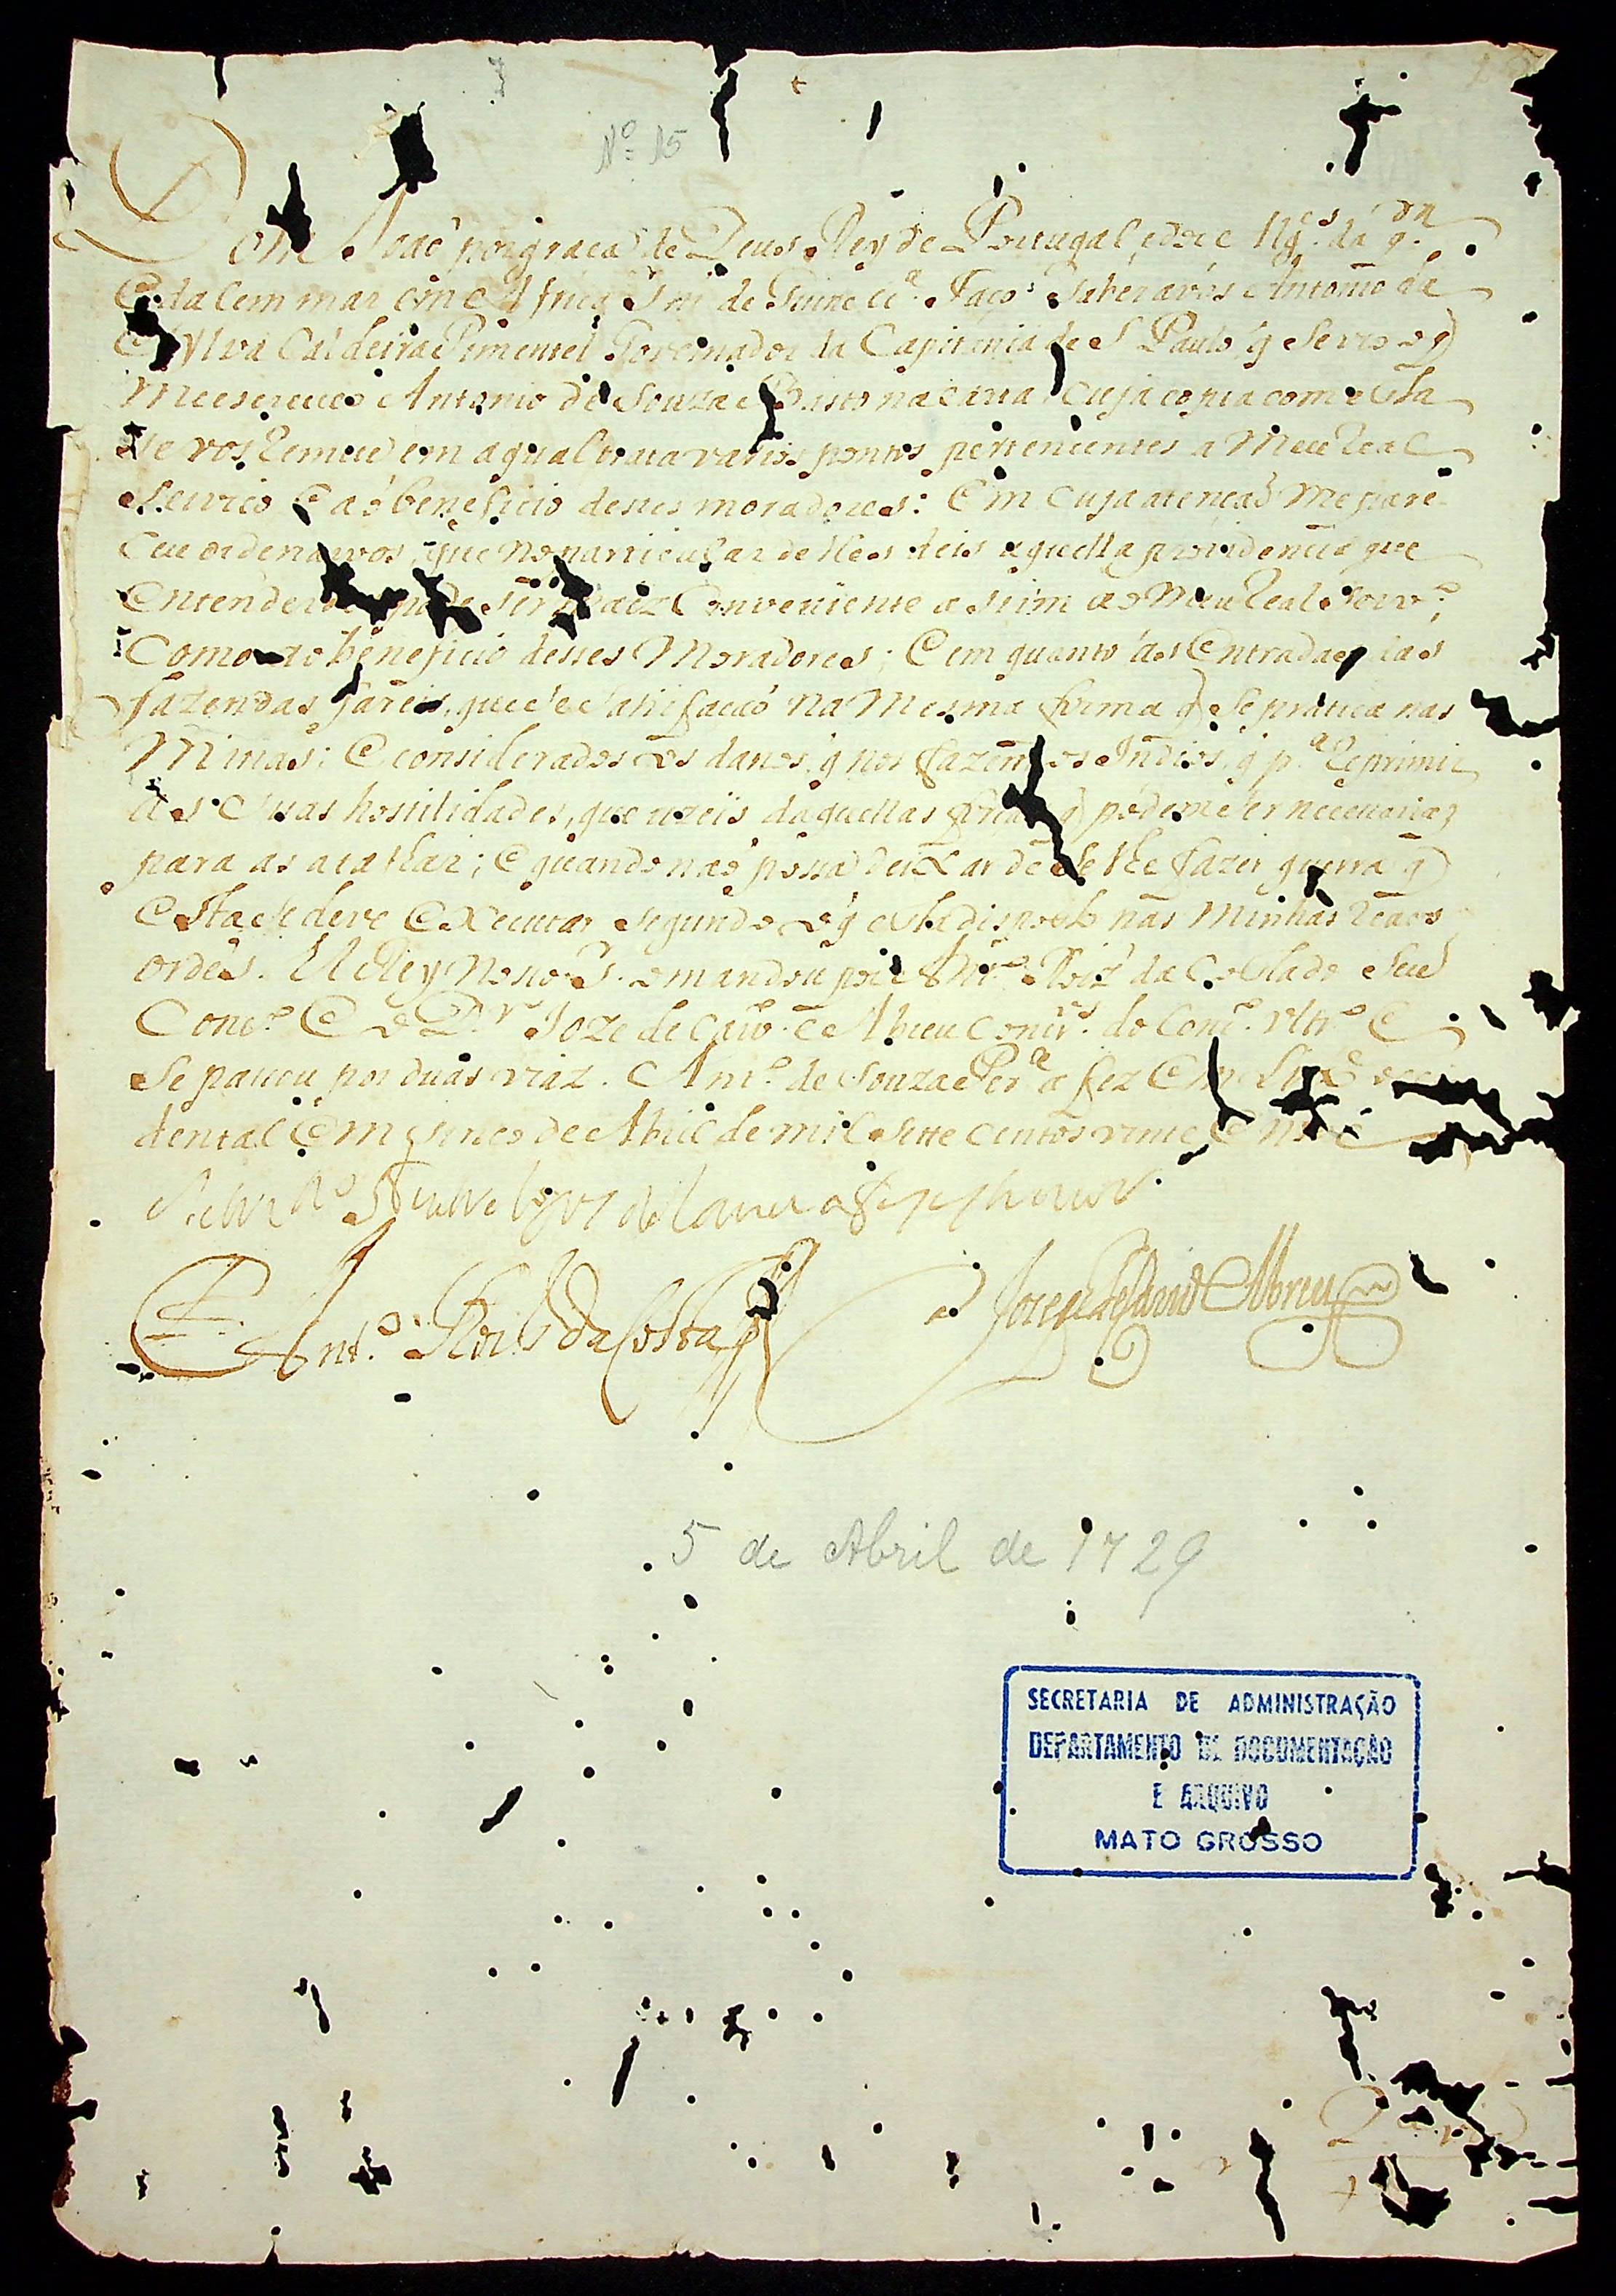 Nº 15
Dom João por graça de Deos Rey de Portugal, e dos Algˢ. da q.ᵐ
E da lem mar em Africa Sñr de Guine etᶜª. Faço Saber avós Antonio da
Sylva Caldeira Pimentel Governador da Capitania de S Paulo, q Se vio o q
Me escreveo Antonio de Souza Basto na carta cuja copia com esta
Se vos Remete em a qual trata varios pontos pertencentes a Meu Real
Serviço E ao beneficio desses moradores: Em cuja atençaõ Me pare-
Ceu ordenarvos, que no particular delles deis aquella providencia que
Entenderes pode ser Conveniente a sim ao Meu Real Serv.º,
Como ao beneficio desses Moradores; E em quanto âs Entradas das
fazendas fareis, que se Satisfaçaõ na Mesma forma q Se pratica nas
Minas; E considerados os danos, q nos fazem os Indios, q p.ª Reprimir
as Suas hostilidades, que uzeis daquellas forças q podem ser necessarias
para as atalhar; E quando naõ possa deixar de Se lhe fazer guerra q
Esta Se deve Executar Segundo o q esta disposto nas Minhas Reaes
ordés. El Rey Nosso Sr. o mandou por Antº. Roiz da Costa do Seu
Conc.º E o D.ʳ Joze de Carv.º e Abreu Conss.ºˢ do Conc.º Ultr.º E
Se passou por duas viaz. Ant.º de Souza Perª a fez Em Lixª occi
dental Em sinco de Abril de mil Sette centos vinte E nove
Ant.º Roiz da Costa
Joze de Carvº Abreu
5 de Abril de 1729
SECRETARIA DE ADMINISTRAÇÃO
DEPARTAMENTO DE DOCUMENTAÇÃO
E ARQUIVO
MATO GROSSO
2ª via